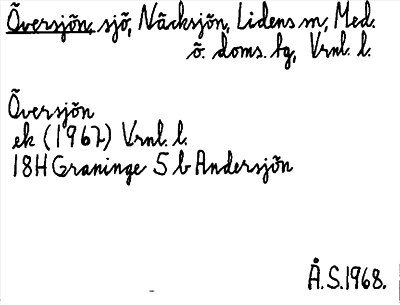 Översjön, sjö, Näcksjön, Lidens sn, Med.
ö. doms. hg, Vrnl. l.
Översjön
ek (1967) Vrnl. l.
18H Graninge 5 b Andersjön
Å.S. 1968.